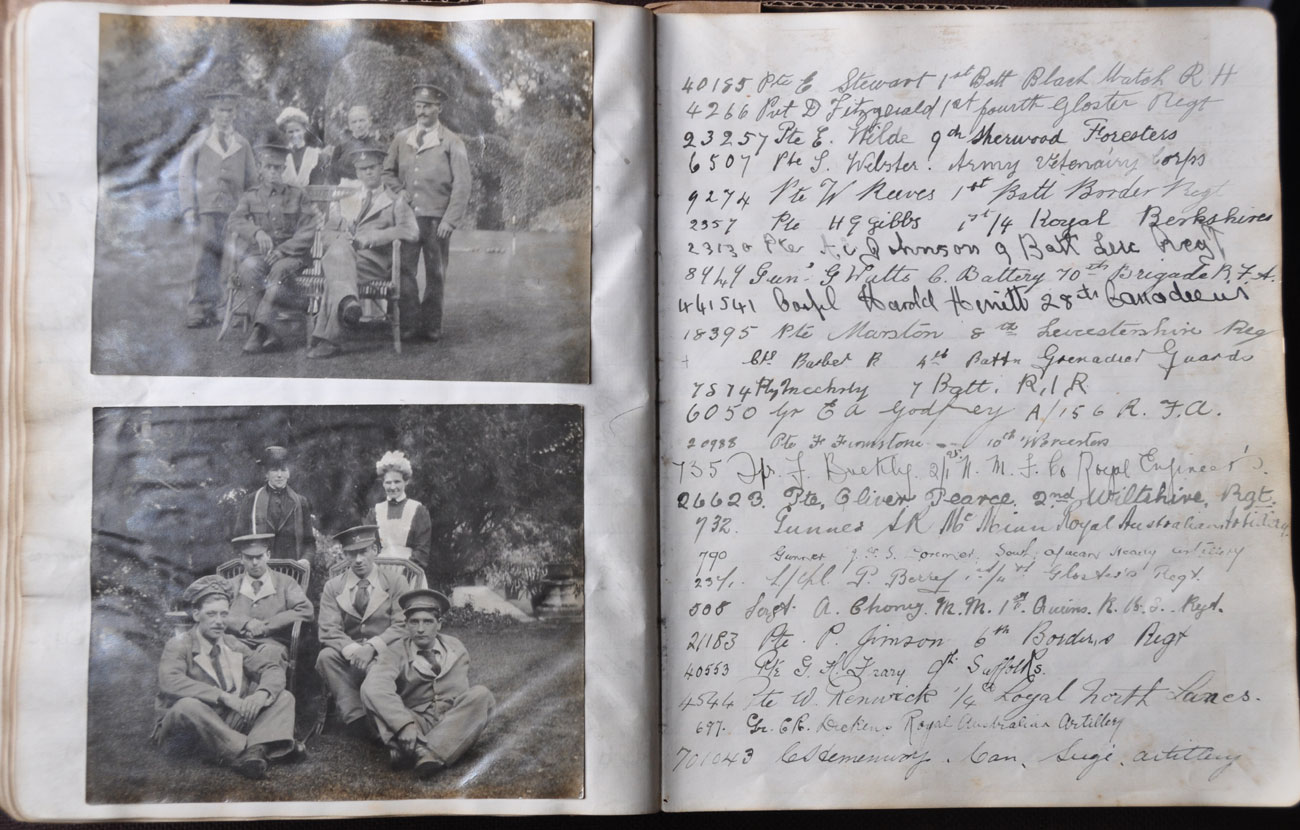 40185 Pte E Stewart 1st Batt Black Watch R H
4266 Pvt D Fitzgerald 1st fourth Gloster Regt
23257 Pte E. Wilde 9th Sherwood Foresters
6507 Pte S. Webster. Army Vetenairy Corps
9274 Pte W Reeves 1st Batt Border Regt
2357 Pte H G Gibbs 1st/4 Royal Berkshires
23130 Pte A. Johnson 9 Batt Leic Regt
8949 Gunr G Watts C. Battery 70th Brigade R. F. A.
441541 Corpl Harold Hewitt 28th Canadians
18395 Pte Marston 8th Leicestershire Reg
Barber R 4th Battn Grenadier Guards
7574 7 Batt. R. I. R
6050 Gr E A Godfrey A/156 R. F. A.
20988 Pte F 10th Worcesters
735 Spr. J. Buckly. 2/1st N. M. F. Co Royal Engineer's.
26623. Pte. Oliver Pearce. 2nd Wiltshire. Rgt.
732. Gunner Royal Australian Artillery
790 Gunner South African Heavy artillery
L/Cpl P. Berry 1st/4th Gloster's Regt.
508 Sergt. A. M. M. 1st Queens. R. W. S. Regt.
21183 Pte. P. Jimson 6th Borders Regt
40553 Pte G. H. Frary 9th Suffolks.
4544 Pte W. Renwick 1/4th Loyal North Lancs.
697. Gr. C R. Dickens Royal Australian Artillery
701043 Can. Seige. artillery